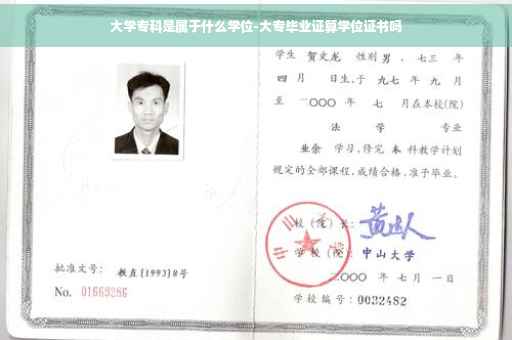 大学专科是属于什么学位-大专毕业证算学位证书吗
学生 贺文龙 性别 男，七三 年
四 月 日生，于 九七 年 九 月
至 二〇〇〇 年 七 月在本校(院)
法 学 专业
业余 学习，修完 本 科教学计划
规定的全部课程，成绩合格，准予毕业。
校(院)长：
学校(院)：中山大学
二〇〇〇 年 七 月 一 日
批准文号： 教直[1993]8号
No. 01669286
学校编号：0032482